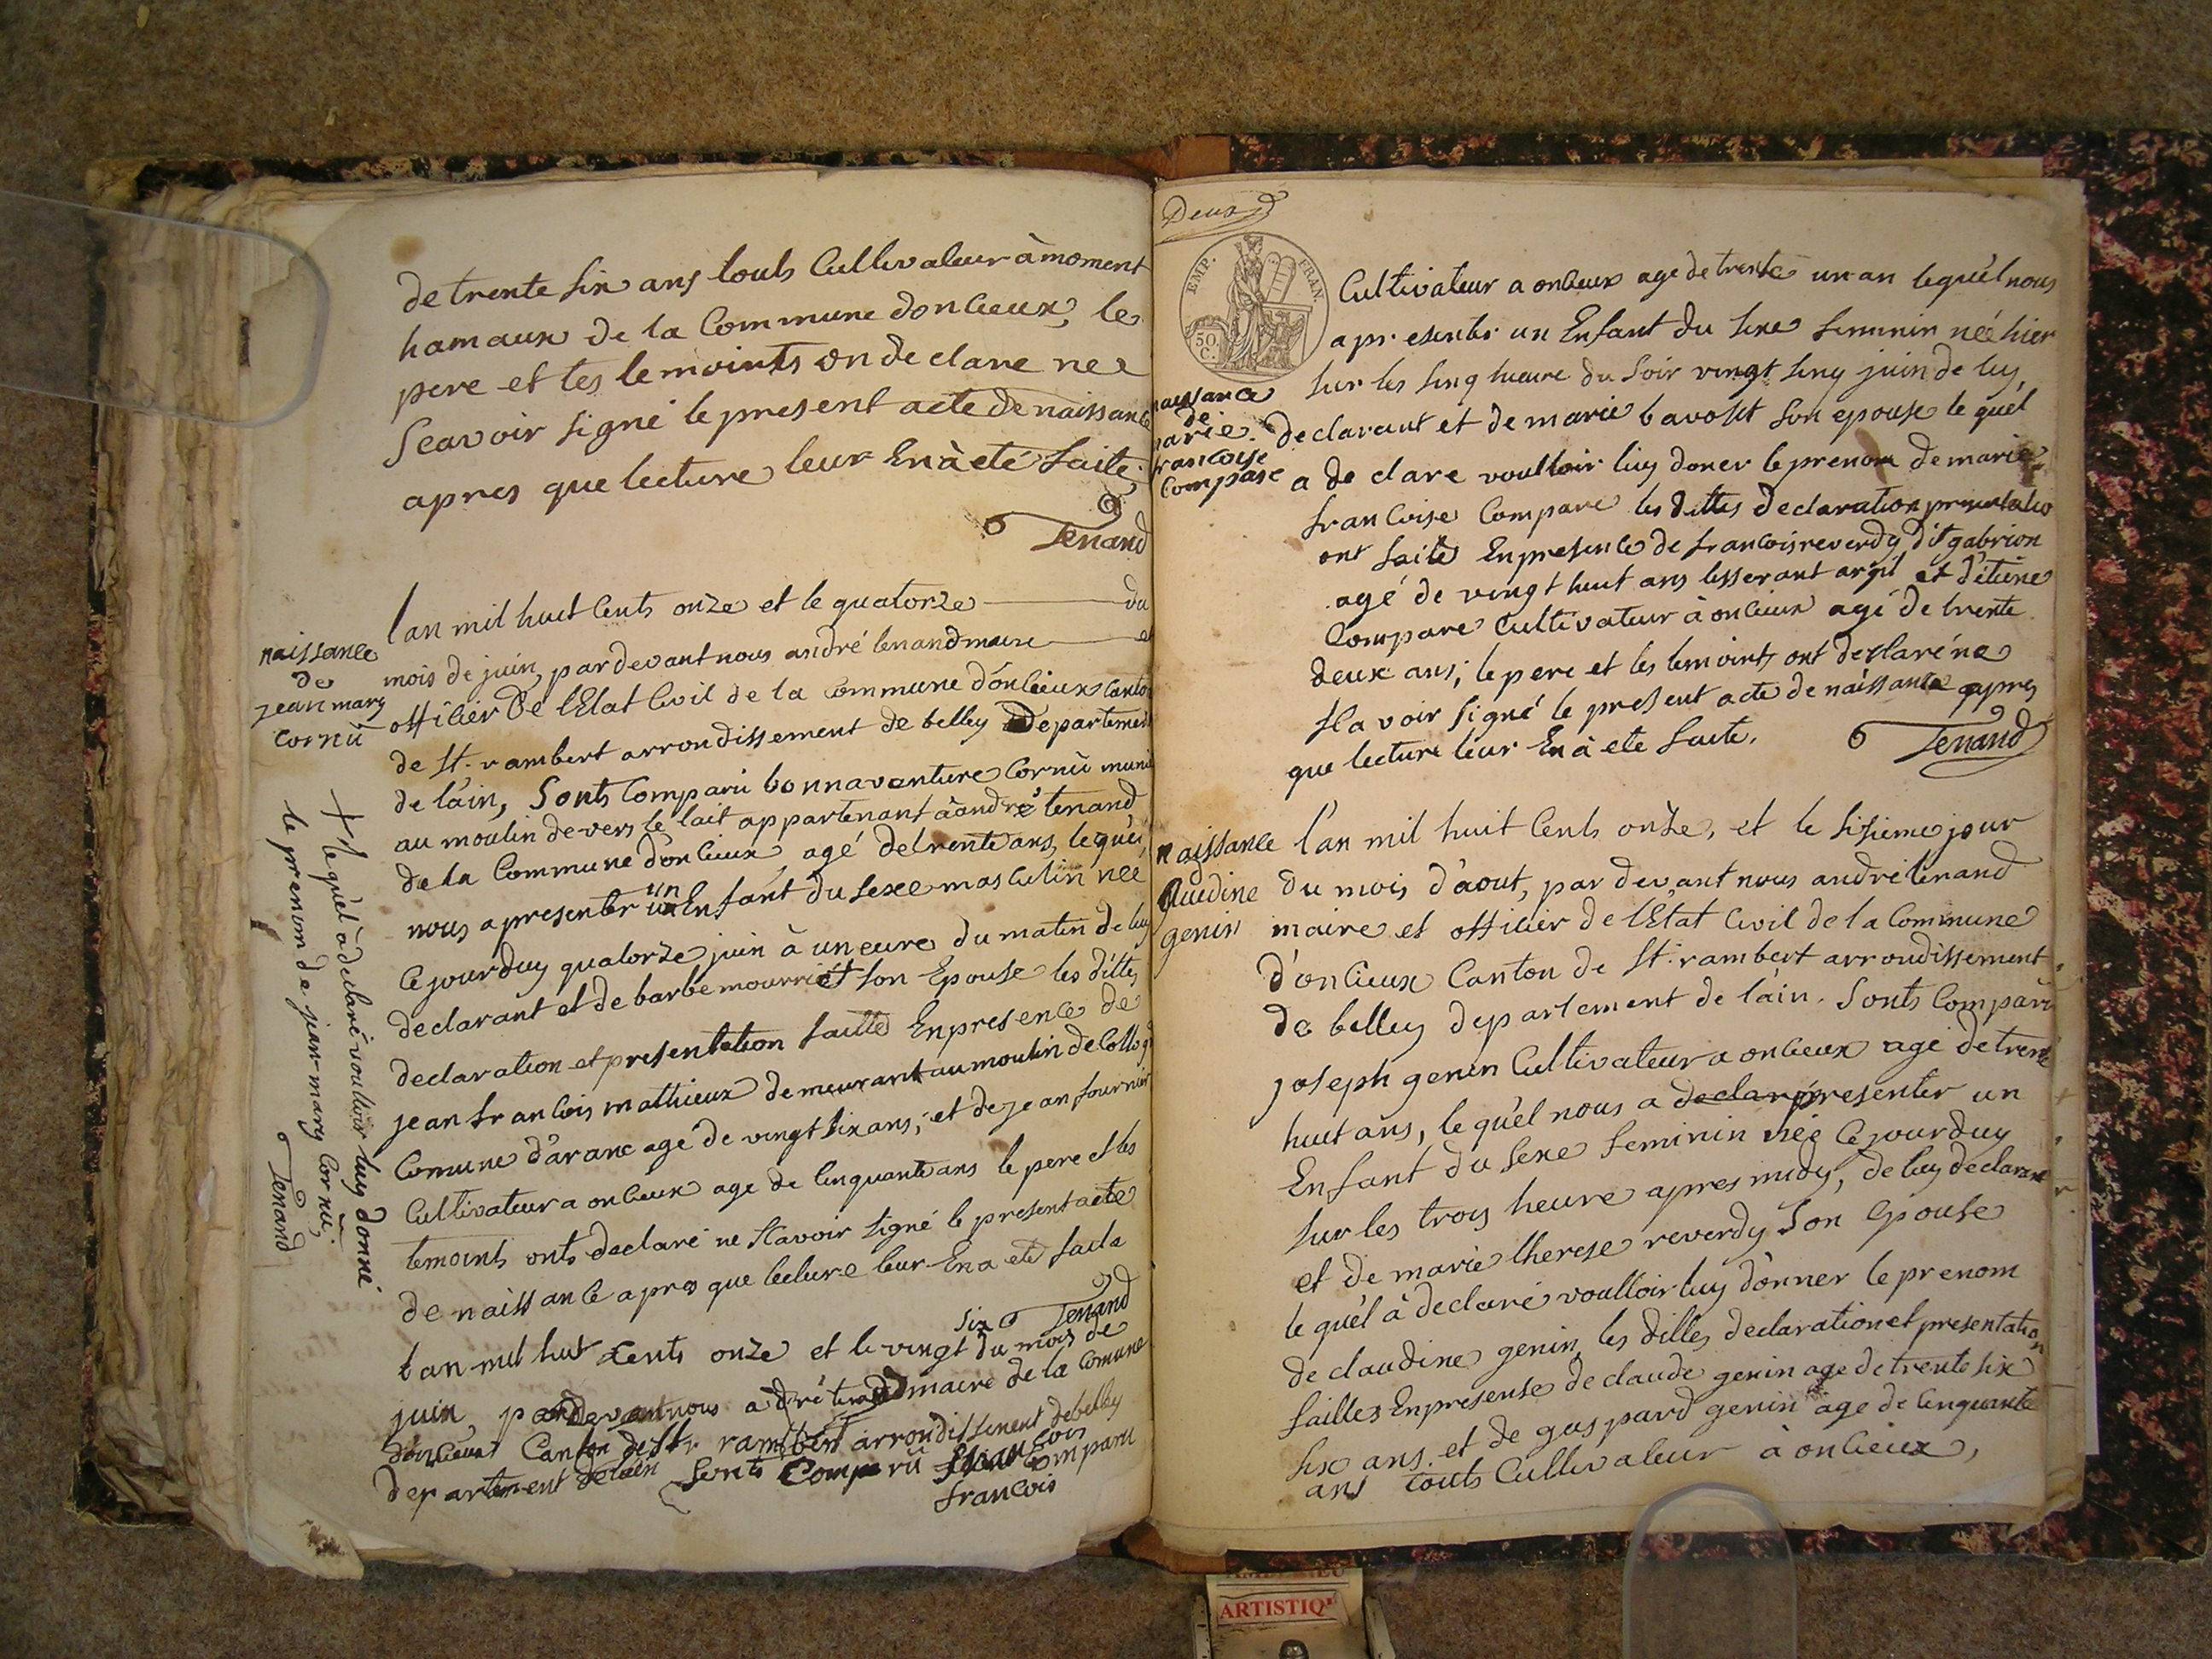 de trente six ans touts Cultivateur à moment
hamaux de la Commune donCieux, le
pere et les temoints on declare ne
Scavoir signé le present acte de naissance
apres que lecture leur En à eté faite
Tenand
naissance
de
jean mary
Cornu
lan mil huit Cents onze et le quatorze du
mois de juin, pardevant nous andré tenand maire et
officier De lEtat Civil de la Commune d'onCieux Canton
de St. rambert arrondissement de belley Departement
de láin, Sonts Comparü bonnavanture Cornü muni
au moulin de vers le lait appartenant à andré tenand
de la Commune d'onCieux agé de trente ans, le quél
nous a presenter un Enfant du sexe masculin neé
Ce jourduy quatorze juin à un eure du matin de luy
declarant et de barbe mourriét son Epouse les dittes
declaration et presentation faitte En presence de
jean franCois mathieux demeurant au moulin de
Comune d'aranc agé de vingt six ans, et de jean fournier
Cultivateur a onCieux age de Cinquante ans le pere et les
temoints onts declaré ne sCavoir signé le present acte
de naissanCe apres que lecture leur En a eté faite
Tenand
+ le quél à declaré voulloir luy donné
le prenom de jean-mary Cornü,
Tenand
lan mil huit Cents onze et le vingt six du mois de
juin, pardevant nous andré tenand maire de la Comune
d'onCieux Canton de St. rambert arrondissement de belley
departement de láin Sonts Comparü franCois Comparu
franCois
Deux
EMP. FRAN.
50 C.
naissance
de
marie
francoise
Compare
Cultivateur a onCieux age de trente un an le quél nous
a presenter un Enfant du sexe feminin neé hier
sur les sinq heure du soir vingt sinq juin de luy,
declarant et de marie bavozt son epouse le quel
a declare voulloir luy doner le prenom de marie
franCoise Compare les dittes declaration presentatio
ont faite En presence de francois reverdy dit gabrion
agé de vingt huit ans tisserant argit et d'étiene
Compare Cultivateur à onCieux agé de trente
deux ans; le pere et les temoints ont declaré ne
sCavoir signé le present acte de naissance apres
que lecture leur En à ete faite.
Tenand
naissance
d
Claudine
genin
l'an mil huit Cents onze, et le sisieme jour
du mois d'aout, par devant nous andré tenand
maire et officier de l'Etat Civil de la Commune
d'onCieux Canton de St. rambert arrondissement
de belley departement de láin. Sonts Comparü
joseph genin Cultivateur a onCieux age de trente
huit ans, le quél nous a declaré presenter un
Enfant du sexe feminin neé Ce jourduy
sur les trois heure apres midy, de luy declarant
et de marie therese reverdy Son epouse
le quél à declaré voulloir luy donner le prenom
de claudine genin, les dittes declaration et presentation
faittes En presense de claude genin age de trente six
six ans. et de gaspard genin age de Cinquante
ans touts Cultivateur à onCieux,
ARTISTIQ